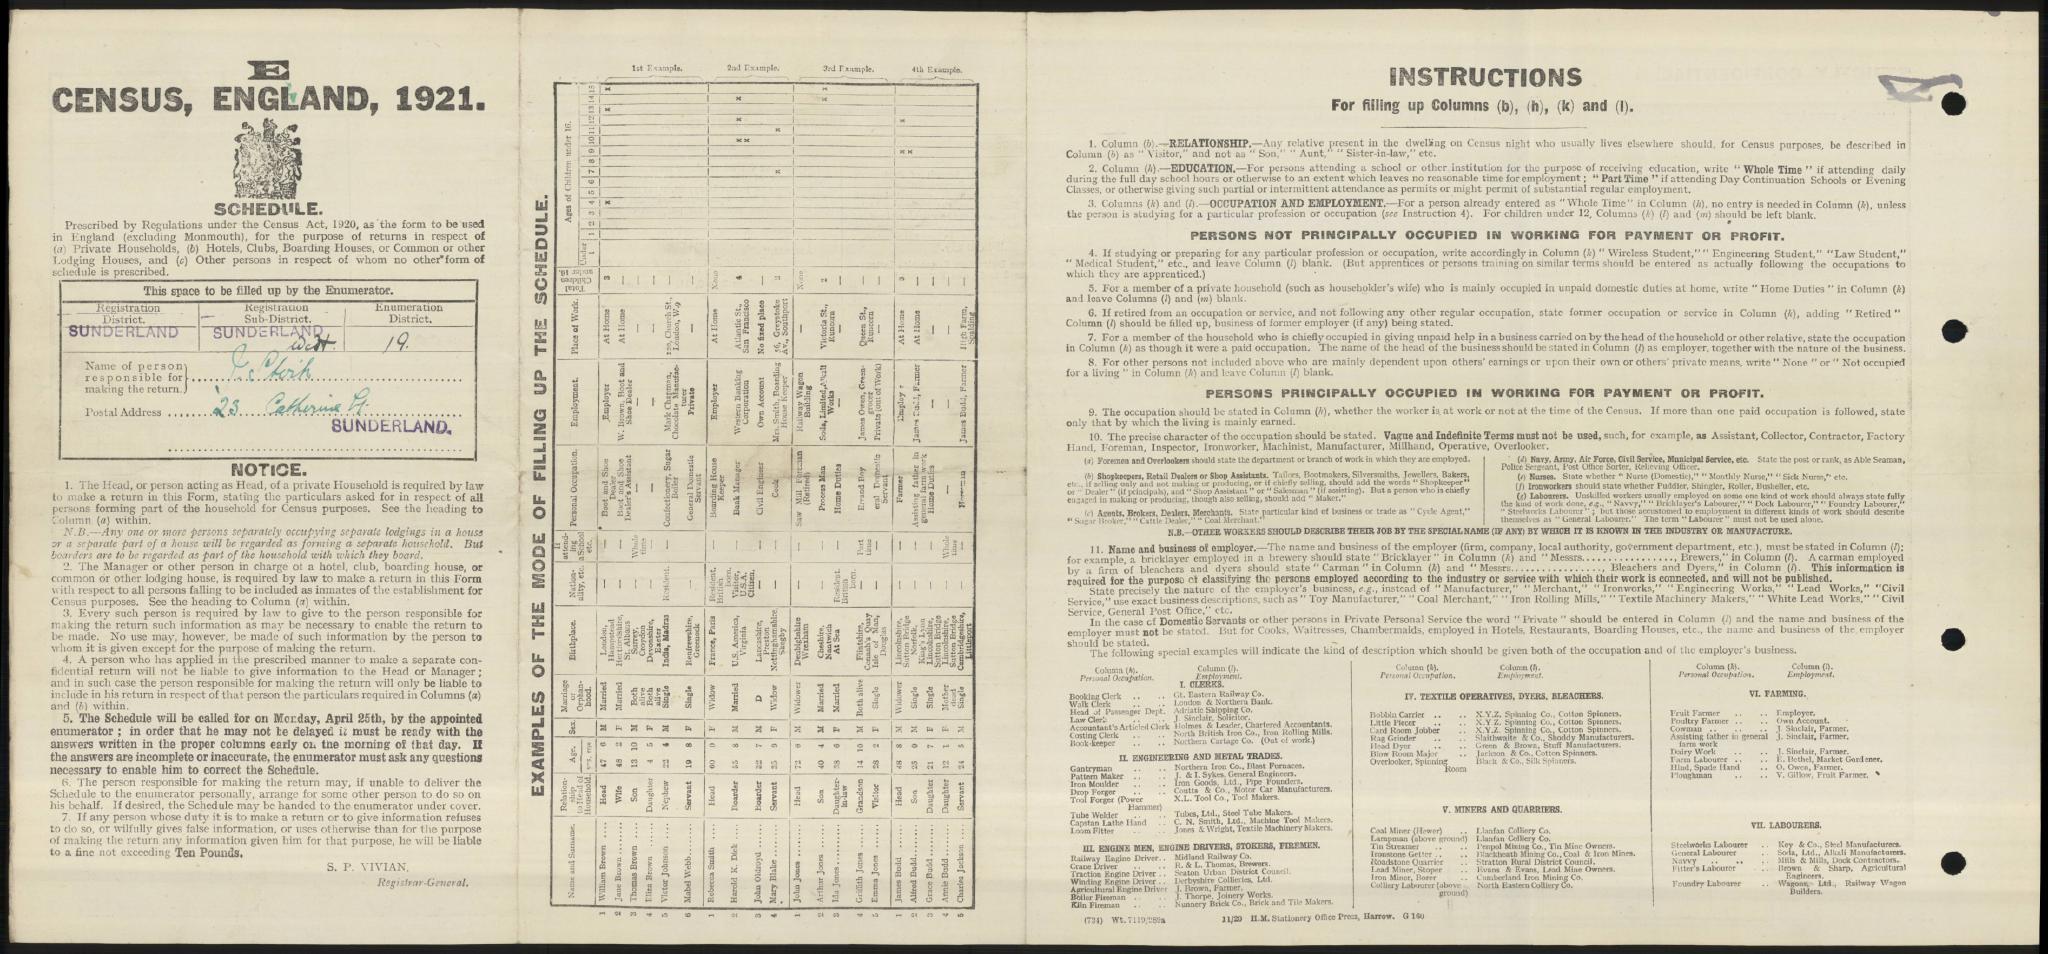 E
CENSUS, ENGLAND, 1921.
SCHEDULE.
Prescribed by Regulations under the Census Act, 1920, as the form to be used
in England (excluding Monmouth), for the purpose of returns in respect of
(a) Private Households, (b) Hotels, Clubs, Boarding Houses, or Common or other
Lodging Houses, and (c) Other persons in respect of whom no other form of
schedule is prescribed.
This space to be filled up by the Enumerator.
Registration District.
Registration Sub-District.
Enumeration District.
SUNDERLAND
SUNDERLAND West.
19.
Name of person
responsible for
making the return.
Postal Address 23 Catherine St
SUNDERLAND.
NOTICE.
1. The Head, or person acting as Head, of a private Household is required by law
to make a return in this Form, stating the particulars asked for in respect of all
persons forming part of the household for Census purposes. See the heading to
Column (a) within.
N.B.—Any one or more persons separately occupying separate lodgings in a house
or a separate part of a house will be regarded as forming a separate household. But
boarders are to be regarded as part of the household with which they board.
2. The Manager or other person in charge of a hotel, club, boarding house, or
common or other lodging house, is required by law to make a return in this Form
with respect to all persons falling to be included as inmates of the establishment for
Census purposes. See the heading to Column (a) within.
3. Every such person is required by law to give to the person responsible for
making the return such information as may be necessary to enable the return to
be made. No use may, however, be made of such information by the person to
whom it is given except for the purpose of making the return.
4. A person who has applied in the prescribed manner to make a separate con-
fidential return will not be liable to give information to the Head or Manager;
and in such case the person responsible for making the return will only be liable to
include in his return in respect of that person the particulars required in Columns (a)
and (b) within.
5. The Schedule will be called for on Monday, April 25th, by the appointed
enumerator; in order that he may not be delayed it must be ready with the
answers written in the proper columns early on the morning of that day. If
the answers are incomplete or inaccurate, the enumerator must ask any questions
necessary to enable him to correct the Schedule.
6. The person responsible for making the return may, if unable to deliver the
Schedule to the enumerator personally, arrange for some other person to do so on
his behalf. If desired, the Schedule may be handed to the enumerator under cover.
7. If any person whose duty it is to make a return or to give information refuses
to do so, or wilfully gives false information, or uses otherwise than for the purpose
of making the return any information given him for that purpose, he will be liable
to a fine not exceeding Ten Pounds.
S. P. VIVIAN,
Registrar-General.
EXAMPLES OF THE MODE OF FILLING UP THE SCHEDULE.
1st Example.
2nd Example.
3rd Example.
4th Example.
Name and Surname.
Relation-ship to Head of Household.
Age.
Sex.
Marriage or Orphan-hood.
Birthplace.
Nation-ality, etc.
If attend-ing a School etc.
Personal Occupation.
Employment.
Place of Work.
Total Children under 16.
Ages of Children under 16.
1 William Brown Head 47 6 M Married London, Hampstead — — Boot and Shoe Dealer Employer At Home 3
2 Jane Brown Wife 48 2 F Married Hertfordshire, St. Albans — — Boot and Shoe Dealer's Assistant W. Brown, Boot and Shoe Dealer At Home —
3 Thomas Brown Son 13 10 M Both alive Surrey, Croydon — Whole time — — — —
4 Eliza Brown Daughter 4 5 F Both alive Devonshire, Exeter — — — — — —
5 Victor Johnson Nephew 22 4 M Single India, Madras Resident. — Confectionery, Sugar Boiler Mark Chapman, Chocolate Manufacturer 120, Church St., London, W.9 —
6 Mabel Webb Servant 19 8 F Single Renfrewshire, Greenock — — General Domestic Servant Private — —
1 Rebecca Smith Head 60 0 F Widow France, Paris Resident, British born. — Boarding House Keeper Employer At Home None
2 Harold K. Dick Boarder 55 8 M Married U.S. America, Virginia Visitor, U.S.A. Citizen. — Bank Manager Western Banking Corporation Atlantic St., San Francisco 4
3 John Oldroyd Boarder 52 7 M D Lancashire, Preston — — Civil Engineer Own Account No fixed place —
4 Mary Blake Servant 35 9 F Widow Nottinghamshire, Skegby — — Cook Mrs. Smith, Boarding House Keeper 56, Greystoke Av., Southport 2
1 John Jones Head 72 6 M Widower Denbighshire Wrexham — — Saw Mill Foreman (Retired) Railway Wagon Building — None
2 Arthur Jones Son 40 4 M Married Cheshire, Nantwich — — Process Man Soda, Limited, Alkali Works Victoria St., Runcorn 2
3 Ida Jones Daughter-in-law 38 6 F Married At Sea Resident. British born. — Home Duties — — —
4 Griffith Jones Grandson 14 10 M Both alive Flintshire, Connah's Quay — Part time Errand Boy James Owen, Greengrocer Queen St., Runcorn —
5 Emma Jones Visitor 28 2 F Single Isle of Man, Douglas — — General Domestic Servant Private (out of Work) — —
1 James Budd Head 48 8 M Widower Lincolnshire, Sutton Bridge — — Farmer Employer At Home 3
2 Alfred Budd Son 25 0 M Single Norfolk, King's Lynn — — Assisting father in general farm work James Budd, Farmer At Home —
3 Grace Budd Daughter 21 7 F Single Lincolnshire, Sutton Bridge — — Home Duties — — —
4 Annie Budd Daughter 12 1 F Mother dead Lincolnshire, Sutton Bridge — Whole time — — — —
5 Charles Jackson Servant 24 5 M Single Cambridgeshire, Littleport — — James Budd, Farmer High Farm, Spalding —
INSTRUCTIONS
For filling up Columns (b), (h), (k) and (l).
1. Column (b).—RELATIONSHIP.—Any relative present in the dwelling on Census night who usually lives elsewhere should, for Census purposes, be described in
Column (b) as "Visitor," and not as "Son," "Aunt," "Sister-in-law," etc.
2. Column (h).—EDUCATION.—For persons attending a school or other institution for the purpose of receiving education, write "Whole Time" if attending daily
during the full day school hours or otherwise to an extent which leaves no reasonable time for employment; "Part Time" if attending Day Continuation Schools or Evening
Classes, or otherwise giving such partial or intermittent attendance as permits or might permit of substantial regular employment.
3. Columns (k) and (l).—OCCUPATION AND EMPLOYMENT.—For a person already entered as "Whole Time" in Column (h), no entry is needed in Column (k), unless
the person is studying for a particular profession or occupation (see Instruction 4). For children under 12, Columns (k) (l) and (m) should be left blank.
PERSONS NOT PRINCIPALLY OCCUPIED IN WORKING FOR PAYMENT OR PROFIT.
4. If studying or preparing for any particular profession or occupation, write accordingly in Column (k) "Wireless Student," "Engineering Student," "Law Student,"
"Medical Student," etc., and leave Column (l) blank. (But apprentices or persons training on similar terms should be entered as actually following the occupations to
which they are apprenticed.)
5. For a member of a private household (such as householder's wife) who is mainly occupied in unpaid domestic duties at home, write "Home Duties" in Column (k)
and leave Columns (l) and (m) blank.
6. If retired from an occupation or service, and not following any other regular occupation, state former occupation or service in Column (k), adding "Retired"
Column (l) should be filled up, business of former employer (if any) being stated.
7. For a member of the household who is chiefly occupied in giving unpaid help in a business carried on by the head of the household or other relative, state the occupation
in Column (k) as though it were a paid occupation. The name of the head of the business should be stated in Column (l) as employer, together with the nature of the business.
8. For other persons not included above who are mainly dependent upon others' earnings or upon their own or others' private means, write "None" or "Not occupied
for a living" in Column (k) and leave Column (l) blank.
PERSONS PRINCIPALLY OCCUPIED IN WORKING FOR PAYMENT OR PROFIT.
9. The occupation should be stated in Column (k), whether the worker is at work or not at the time of the Census. If more than one paid occupation is followed, state
only that by which the living is mainly earned.
10. The precise character of the occupation should be stated. Vague and Indefinite Terms must not be used, such, for example, as Assistant, Collector, Contractor, Factory
Hand, Foreman, Inspector, Ironworker, Machinist, Manufacturer, Millhand, Operative, Overlooker.
(a) Foremen and Overlookers should state the department or branch of work in which they are employed.
(b) Shopkeepers, Retail Dealers or Shop Assistants. Tailors, Bootmakers, Silversmiths, Jewellers, Bakers,
etc., if selling only and not making or producing, or if chiefly selling, should add the words "Shopkeeper"
or "Dealer" (if principals), and "Shop Assistant" or "Salesman" (if assisting). But a person who is chiefly
engaged in making or producing, though also selling, should add "Maker."
(c) Agents, Brokers, Dealers, Merchants. State particular kind of business or trade as "Cycle Agent,"
"Sugar Broker," "Cattle Dealer," "Coal Merchant."
(d) Navy, Army, Air Force, Civil Service, Municipal Service, etc. State the post or rank, as Able Seaman,
Police Sergeant, Post Office Sorter, Relieving Officer.
(e) Nurses. State whether "Nurse (Domestic)," "Monthly Nurse," "Sick Nurse," etc.
(f) Ironworkers should state whether Puddler, Shingler, Roller, Busheller, etc.
(g) Labourers. Unskilled workers usually employed on some one kind of work should always state fully
the kind of work done, e.g., "Navvy," "Bricklayer's Labourer," "Dock Labourer," "Foundry Labourer,"
"Steelworks Labourer"; but those accustomed to employment in different kinds of work should describe
themselves as "General Labourer." The term "Labourer" must not be used alone.
N.B.—OTHER WORKERS SHOULD DESCRIBE THEIR JOB BY THE SPECIAL NAME (IF ANY) BY WHICH IT IS KNOWN IN THE INDUSTRY OR MANUFACTURE.
11. Name and business of employer.—The name and business of the employer (firm, company, local authority, government department, etc.), must be stated in Column (l);
for example, a bricklayer employed in a brewery should state "Bricklayer" in Column (k) and "Messrs. .......... Brewers," in Column (l). A carman employed
by a firm of bleachers and dyers should state "Carman" in Column (k) and "Messrs. .........., Bleachers and Dyers," in Column (l). This information is
required for the purpose of classifying the persons employed according to the industry or service with which their work is connected, and will not be published.
State precisely the nature of the employer's business, e.g., instead of "Manufacturer," "Merchant," "Ironworks," "Engineering Works," "Lead Works," "Civil
Service," use exact business descriptions, such as "Toy Manufacturer," "Coal Merchant," "Iron Rolling Mills," "Textile Machinery Makers," "White Lead Works," "Civil
Service, General Post Office," etc.
In the case of Domestic Servants or other persons in Private Personal Service the word "Private" should be entered in Column (l) and the name and business of the
employer must not be stated. But for Cooks, Waitresses, Chambermaids, employed in Hotels, Restaurants, Boarding Houses, etc., the name and business of the employer
should be stated.
The following special examples will indicate the kind of description which should be given both of the occupation and of the employer's business.
Column (k). Personal Occupation.
Column (l). Employment.
I. CLERKS.
Booking Clerk .. Gt. Eastern Railway Co.
Bank Clerk .. London & Northern Bank.
Head of Passenger Dept. Adriatic Shipping Co.
Law Clerk .. J. Sinclair, Solicitor.
Accountant's Articled Clerk Holmes & Leader, Chartered Accountants.
Costing Clerk .. North British Iron Co., Iron Rolling Mills.
Book-keeper .. Northern Cartage Co. (Out of work.)
II. ENGINEERING AND METAL TRADES.
Gantryman .. Northern Iron Co., Blast Furnaces.
Pattern Maker .. J. & I. Sykes, General Engineers.
Iron Moulder .. Iron Goods, Ltd., Pipe Founders.
Drop Forger .. Coutts & Co., Motor Car Manufacturers.
Tool Forger (Power Hammer) X.L. Tool Co., Tool Makers.
Tube Welder .. Tubes, Ltd., Steel Tube Makers.
Capstan Lathe Hand .. C. N. Smith, Ltd., Machine Tool Makers.
Loom Fitter .. Jones & Wright, Textile Machinery Makers.
III. ENGINE MEN, ENGINE DRIVERS, STOKERS, FIREMEN.
Railway Engine Driver .. Midland Railway Co.
Crane Driver .. R. & L. Thomas, Brewers.
Traction Engine Driver .. Seaton Urban District Council.
Winding Engine Driver .. Derbyshire Collieries, Ltd.
Agricultural Engine Driver J. Brown, Farmer.
Boiler Fireman .. J. Thorpe, Joinery Works.
Kiln Fireman .. Nunnery Brick Co., Brick and Tile Makers.
Column (k). Personal Occupation.
Column (l). Employment.
IV. TEXTILE OPERATIVES, DYERS, BLEACHERS.
Bobbin Carrier .. X.Y.Z. Spinning Co., Cotton Spinners.
Little Piecer .. X.Y.Z. Spinning Co., Cotton Spinners.
Card Room Jobber .. X.Y.Z. Spinning Co., Cotton Spinners.
Rag Grinder .. Slaithwaite & Co., Shoddy Manufacturers.
Head Dyer .. Green & Brown, Stuff Manufacturers.
Blow Room Major .. Jackson & Co., Cotton Spinners.
Overlooker, Spinning Room Black & Co., Silk Spinners.
V. MINERS AND QUARRIERS.
Coal Miner (Hewer) .. Llanfan Colliery Co.
Lampman (above ground) Llanfan Colliery Co.
Tin Streamer .. Penpol Mining Co., Tin Mine Owners.
Ironstone Getter .. Blackheath Mining Co., Coal & Iron Mines.
Roadstone Quarrier .. Stratton Rural District Council.
Lead Miner, Stoper .. Evans & Evans, Lead Mine Owners.
Iron Miner, Borer .. Cumberland Iron Mining Co.
Colliery Labourer (above ground) North Eastern Colliery Co.
Column (k). Personal Occupation.
Column (l). Employment.
VI. FARMING.
Fruit Farmer .. Employer.
Poultry Farmer .. Own Account.
Cowman .. J. Sinclair, Farmer.
Assisting father in general farm work J. Sinclair, Farmer.
Dairy Work .. J. Sinclair, Farmer.
Farm Labourer .. E. Bethel, Market Gardener.
Hind, Spade Hand .. O. Owen, Farmer.
Ploughman .. V. Gillow, Fruit Farmer.
VII. LABOURERS.
Steelworks Labourer .. Key & Co., Steel Manufacturers.
General Labourer .. Soda, Ltd., Alkali Manufacturers.
Navvy .. Mills & Mills, Dock Contractors.
Fitter's Labourer .. Brown & Sharp, Agricultural Engineers.
Foundry Labourer .. Wagons, Ltd., Railway Wagon Builders.
(734) Wt. 7119/289a 11/20 H.M. Stationery Office Press, Harrow. G 160